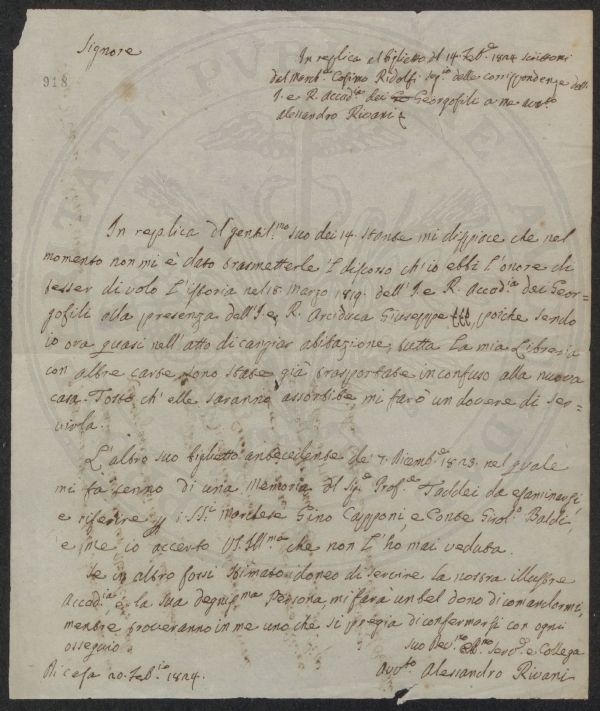 Signore
918
In replica al biglietto del 14. Feb.º 1824 scrittomi
dal March.e Cosimo Ridolfi Seg.rio delle corrispondenze dell'
I. e R. Accad.ia dei Georgofili a me Avv.to
Alessandro Rivani
In replica al gentil.mo suo dei 14. stante mi dispiace che nel
momento non mi è dato trasmetterle il discorso ch'io ebbi l'onore di
tesser di volo l'istoria nel 18. Marzo 1819. dell'I. e R. Accad.ia dei Geor=
gofili alla presenza dell'I. e R. Arciduca Giuseppe, poiche sendo
io ora quasi nell'atto di cangiar abitazione, tutta la mia Libreria
con altre carte sono state già trasportate in confuso alla nuova
casa. Tosto ch'elle saranno assortite mi farò un dovere di ser=
virla.
L'altro suo biglietto antecedente de 7. Dicemb.e 1823. nel quale
mi fa cenno di una Memoria del Sig.e Prof.re Taddei da esaminarsi
e riferire i SS.i Marchese Gino Capponi e Conte Girol.o Baldi,
e me io accerto VS. Ill.ma che non l'ho mai veduta.
Se in altro fossi stimato idoneo di servire la nostra illustre
Accad.ia, e la sua degnis.ma Persona, mi farà un bel dono di comandarmi,
mentre troveranno in me uno che si pregia di confermarsi con ogni
ossequio
Suo Dev.mo Obb.mo Serv.e e Collega
Di Casa 20. Feb.io 1824.
Avv.to Alessandro Rivani